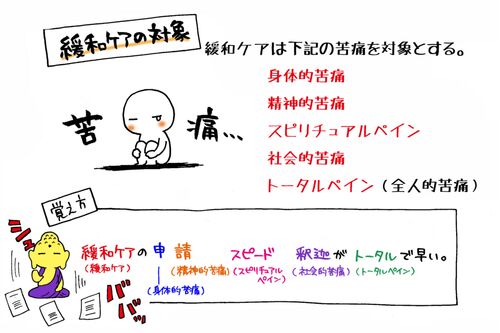 緩和ケアの対象
緩和ケアは下記の苦痛を対象とする。
身体的苦痛
精神的苦痛
スピリチュアルペイン
社会的苦痛
トータルペイン（全人的苦痛）
苦痛、、、
覚え方
シュ
バババッ
緩和ケアの申請 スピード 釈迦がトータルで早い。
(緩和ケア) (精神的苦痛) (スピリチュアルペイン) (社会的苦痛) (トータルペイン)
(身体的苦痛)